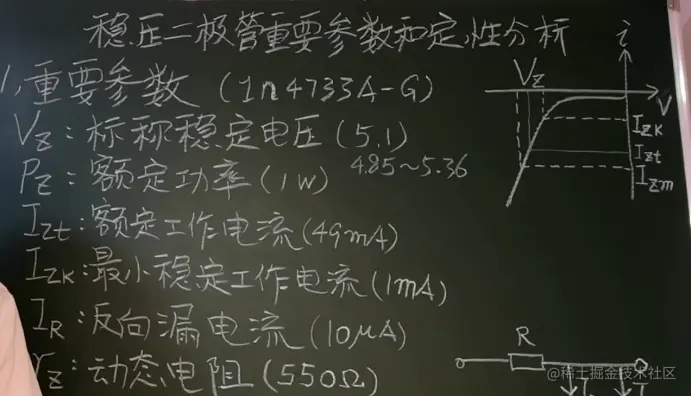 稳压二极管重要参数和定性分析
1,重要参数 (1n4733A-G)
Vz:标称稳定电压(5.1)
4.85~5.36
Pz:额定功率(1W)
Izt:额定工作电流(49mA)
IZK:最小稳定工作电流(1mA)
IR:反向漏电流(10μA)
rz:动态电阻(550Ω)
i
Vz
V
IZK
Izt
Izm
R
@稀土掘金技术社区